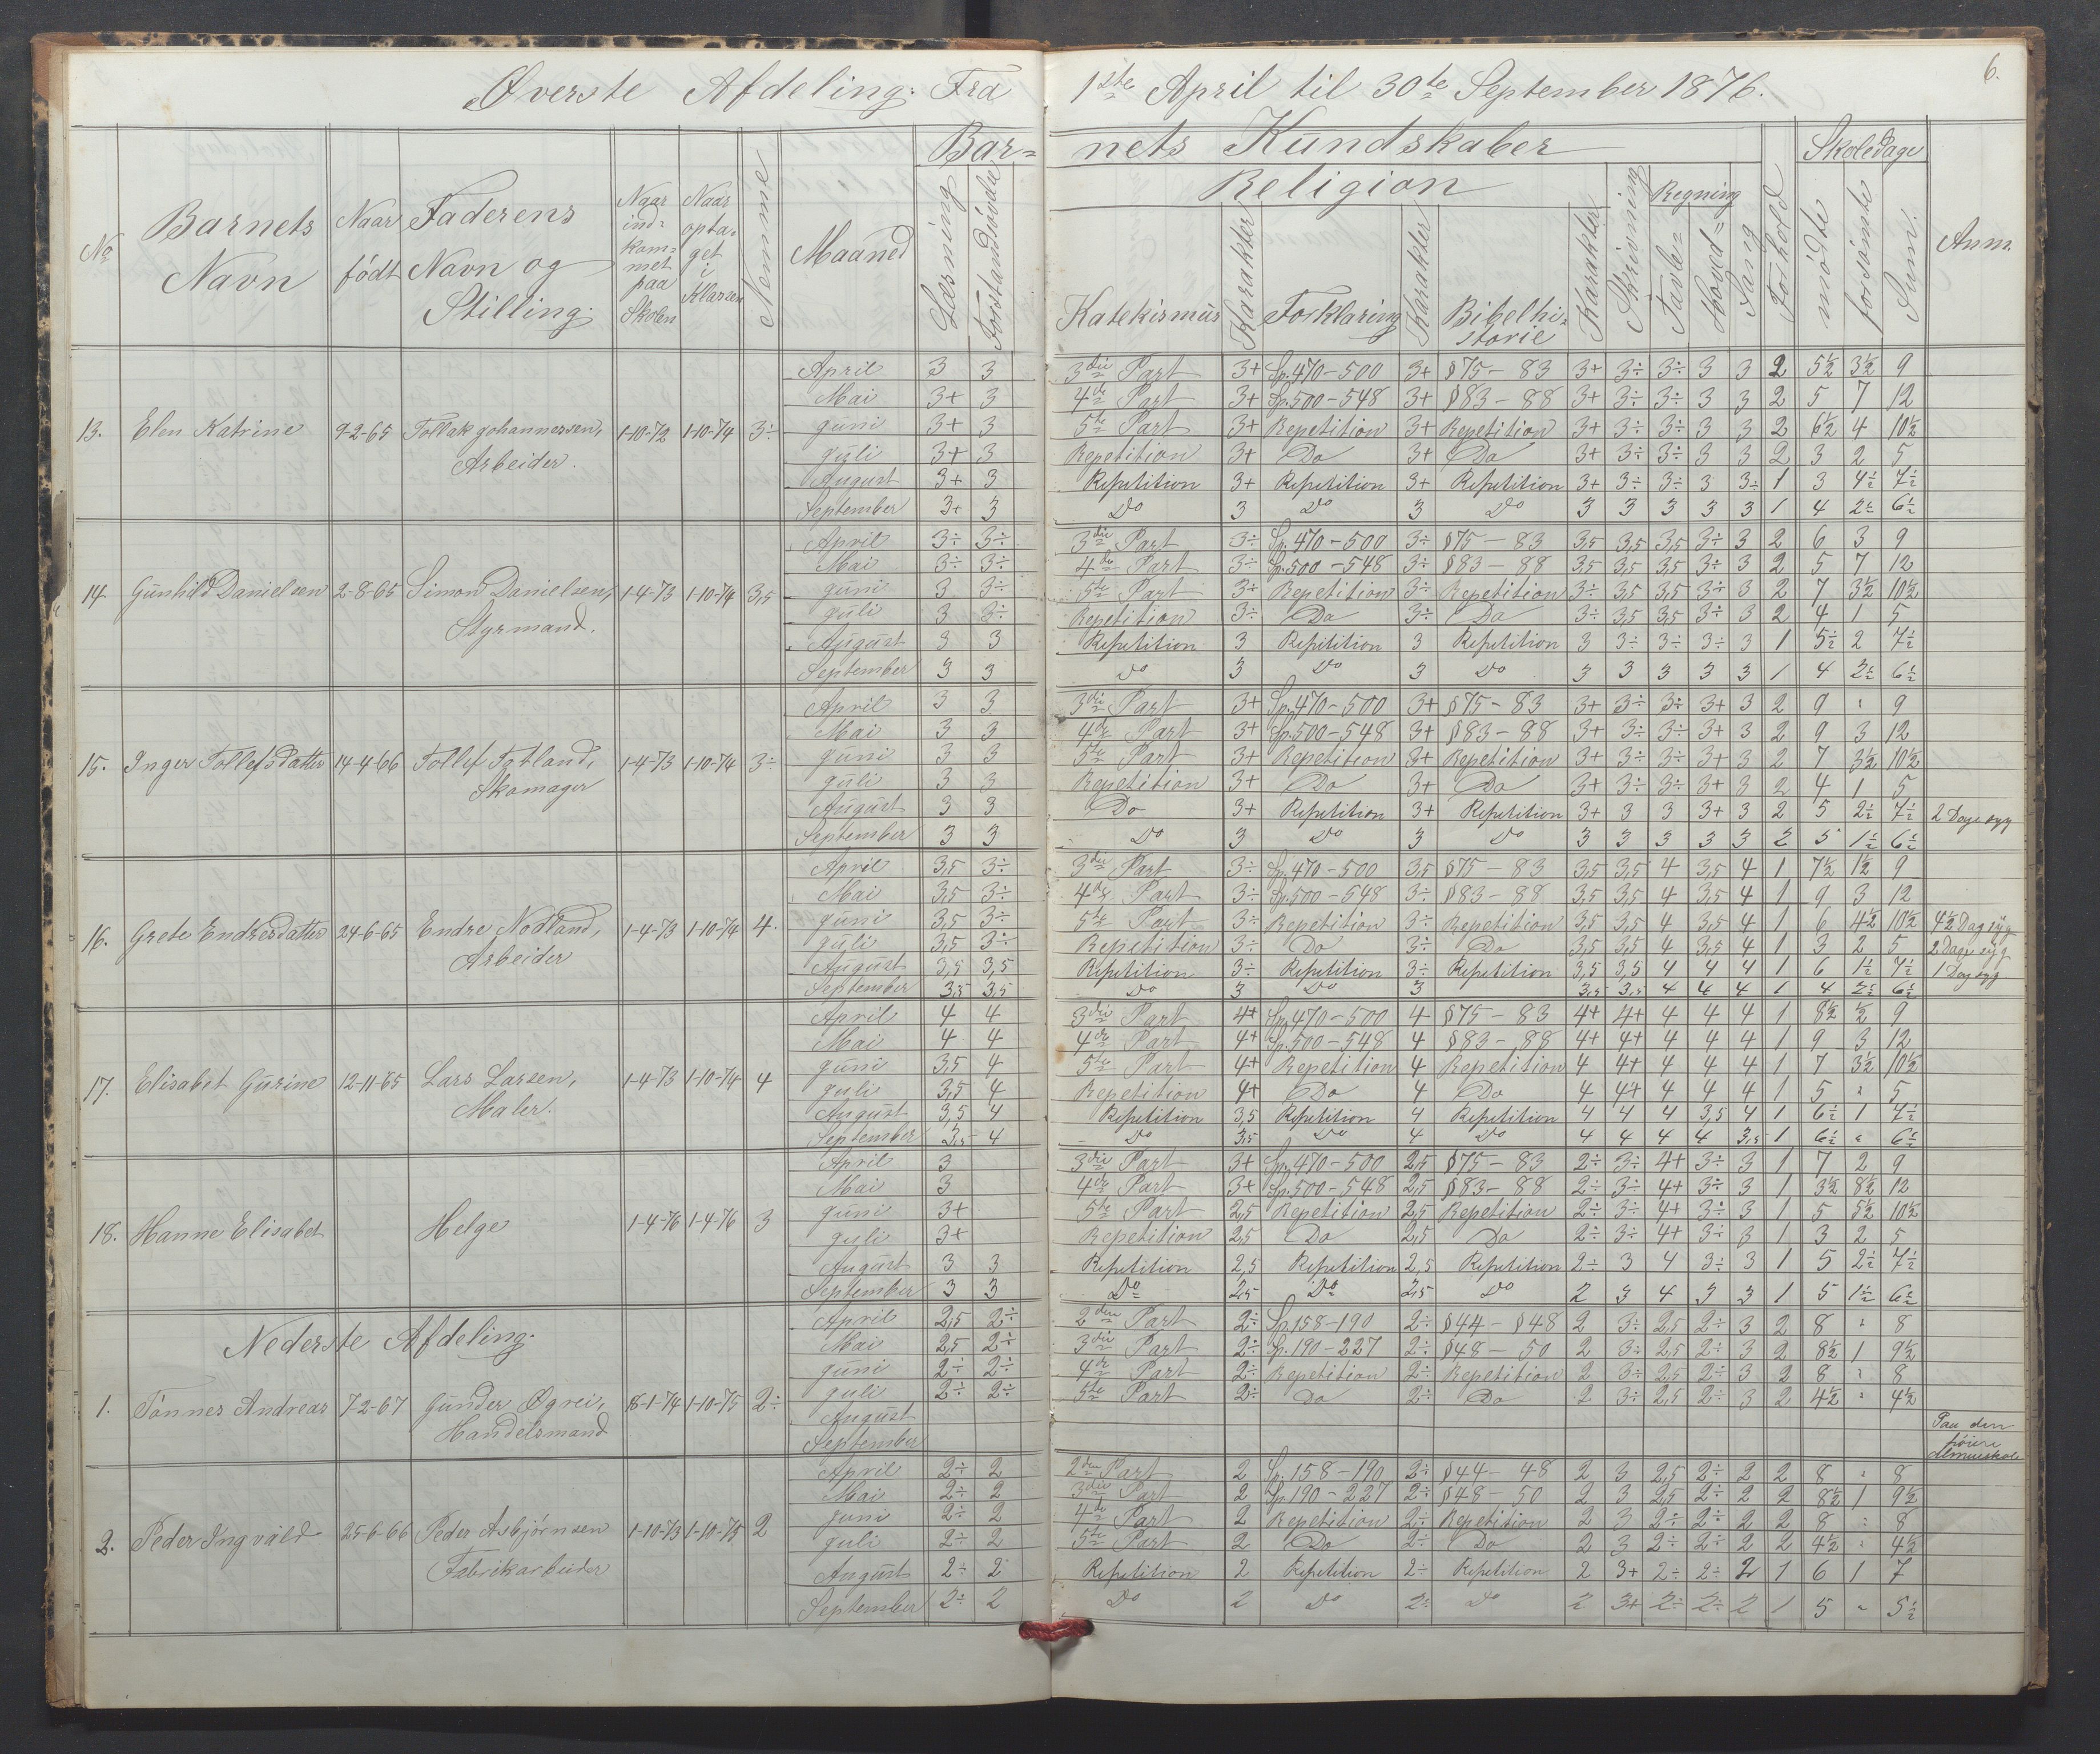 6.
Øverste Afdeling. Fra 1ste April til 30te September 1876.
No
Barnets Navn
Naar født
Faderens Navn og Stilling.
Naar ind= kom= met paa Skolen
Naar opta= get i Klassen
Nemme
Maaned
Bar= nets Kundskaber
Læsning
Forstandsøvelse
Religion
Katekismus
Karakter
Forklaring
Karakter
Bibelhi= storie
Karakter
Skrivning
Regning
Tavle=
Hoved=
Sang
Forhold
Skoledage
mødte
forsømte
Sum.
Anm.
13. Elen Katrine 9-2-65 Tollak Johannessen, Arbeider. 1-10-72 1-10-74 3÷
April 3 3 3die Part 3+ Sp. 470-500 3+ §75-83 3+ 3÷ 3÷ 3 3 2 5½ 3½ 9
Mai 3+ 3 4de Part 3+ Sp. 500-548 3+ §83-88 3+ 3÷ 3÷ 3 3 2 5 7 12
Juni 3+ 3 5te Part 3+ Repetition 3+ Repetition 3+ 3÷ 3÷ 3 3 2 6½ 4 10½
Juli 3+ 3 Repetition 3+ Do 3+ Do 3+ 3÷ 3÷ 3 3 2 3 2 5
August 3+ 3 Repetition 3+ Repetition 3+ Repetition 3+ 3÷ 3÷ 3 3÷ 1 3 4½ 7½
September 3+ 3 Do 3 Do 3 Do 3 3 3 3 3 1 4 2½ 6½
14 Gunhild Danielsen 2-8-65 Simon Danielsen, Styrmand. 1-4-73 1-10-74 3,5
April 3÷ 3÷ 3die Part 3÷ Sp. 470-500 3÷ §75-83 3,5 3,5 3,5 3÷ 3 2 6 3 9
Mai 3÷ 3÷ 4de Part 3÷ Sp. 500-548 3÷ §83-88 3,5 3,5 3,5 3÷ 3 2 5 7 12
Juni 3 3÷ 5te Part 3÷ Repetition 3÷ Repetition 3÷ 3,5 3,5 3÷ 3 2 7 3½ 10½
Juli 3 3÷ Repetition 3÷ Do 3÷ Do 3÷ 3,5 3,5 3÷ 3 2 4 1 5
August 3 3 Repetition 3 Repitition 3 Repetition 3 3÷ 3÷ 3÷ 3 1 5½ 2 7½
September 3 3 Do 3 Do 3 Do 3 3 3 3 3 1 4 2½ 6½
15. Inger Tollefsdatter 14-4-66 Tollef Totland, Skomager 1-4-73 1-10-74 3÷
April 3 3 3die Part 3+ Sp. 470-500 3+ §75-83 3+ 3÷ 3÷ 3+ 3 2 9 " 9
Mai 3 3 4de Part 3+ Sp. 500-548 3+ §83-88 3+ 3÷ 3÷ 3+ 3 2 9 3 12
Juni 3 3 5te Part 3+ Repetition 3+ Repetition 3+ 3÷ 3÷ 3+ 3 2 7 3½ 10½
Juli 3 3 Repetition 3+ Do 3+ Do 3+ 3÷ 3÷ 3+ 3 2 4 1 5
August 3 3 Do 3+ Repetition 3+ Repetition 3+ 3 3 3+ 3 2 5 2½ 7½ 2 Dage syg
September 3 3 Do 3 Do 3 Do 3 3 3 3 3 2 5 1½ 6½
16. Grete Endresdatter 24-6-65 Endre Nodland, Arbeider 1-4-73 1-10-74 4.
April 3,5 3÷ 3die Part 3÷ Sp. 470-500 3,5 §75-83 3,5 3,5 4 3,5 4 1 7½ 1½ 9
Mai 3,5 3÷ 4de Part 3÷ Sp. 500-548 3÷ §83-88 3,5 3,5 4 3,5 4 1 9 3 12
Juni 3,5 3÷ 5te Part 3÷ Repetition 3÷ Repetition 3,5 3,5 4 3,5 4 1 6 4½ 10½ 4½ Dag syg
Juli 3,5 3÷ Repetition 3÷ Do 3÷ Do 3,5 3,5 4 3,5 4 1 3 2 5 2 Dage syg
August 3,5 3,5 Repetition 3÷ Repetition 3÷ Repetition 3,5 3,5 4 4 4 1 6 1½ 7½ 1 Dag syg
September 3,5 3,5 Do 3 Do 3 3,5 3,5 4 4 4 1 4 2½ 6½
17. Elisabet Gurine 12-11-65 Lars Larsen, Maler. 1-4-73 1-10-74 4
April 4 4 3die Part 4+ Sp. 470-500 4 §75-83 4+ 4+ 4 4 4 1 8½ ½ 9
Mai 4 4 4de Part 4+ Sp. 500-548 4 §83-88 4+ 4+ 4 4 4 1 9 3 12
Juni 3,5 4 5te Part 4+ Repetition 4 Repetition 4 4+ 4 4 4 1 7 3½ 10½
Juli 3,5 4 Repetition 4+ Do 4 Do 4 4+ 4 4 4 1 5 " 5
August 3,5 4 Repetition 3,5 Repetition 4 Repetition 4 4 4 3,5 4 1 6½ 1 7½
September 3,5 4 Do 3,5 Do 4 Do 4 4 4 4 3,5 1 6½ " 6½
18. Hanne Elisabet Helge 1-4-76 1-4-76 3
April 3 3die Part 3+ Sp. 470-500 2,5 §75-83 2÷ 3÷ 4+ 3÷ 3 1 7 2 9
Mai 3 4de Part 3+ Sp. 500-548 2,5 §83-88 2÷ 3÷ 4+ 3÷ 3 1 3½ 8½ 12
Juni 3+ 5te Part 2,5 Repetition 2,5 Repetition 2÷ 3÷ 4+ 3÷ 3 1 5 5½ 10½
Juli 3+ Repetition 2,5 Do 2,5 Do 2÷ 3÷ 4+ 3÷ 3 1 3 2 5
August 3 3 Repetition 2,5 Repetition 2,5 Repetition 2÷ 3 4 3÷ 3 1 5 2½ 7½
September 3 3 Do 2,5 Do 2,5 Do 2 3 4 3 3 1 5 1½ 6½
Nederste Afdeling.
1. Tønnes Andreas 7-2-67 Gunder Øgrei, Handelsmand 18-1-74 1-10-75 2÷
April 2,5 2÷ 2den Part 2÷ Sp. 158-190 2÷ §44-§48 2 3÷ 2,5 2÷ 3 2 8 " 8
Mai 2,5 2÷ 3die Part 2÷ Sp. 190-227 2÷ §48-50 2 3÷ 2,5 2÷ 3 2 8½ 1 9½
Juni 2÷ 2÷ 4de Part 2÷ Repetition 2÷ Repetition 2 3÷ 2,5 2÷ 3 2 8 " 8
Juli 2÷ 2÷ 5te Part 2÷ Do 2÷ Do 2 3÷ 2,5 2÷ 3 2 4½ " 4½
August
September
Paa den høiere Almueskole
2. Peder Ingvald 25-6-66 Peder Asbjørnsen Fabrikarbeider 1-10-73 1-10-75 2
April 2÷ 2 2den Part 2 Sp. 158-190 2÷ §44-48 2 3 2,5 2÷ 2 2 8 " 8
Mai 2÷ 2 3die Part 2 Sp. 190-227 2÷ §48-50 2 3 2,5 2÷ 2 2 8½ 1 9½
Juni 2÷ 2 4de Part 2 Repetition 2÷ Repetition 2 3 2÷ 2÷ 2 2 8 " 8
Juli 2÷ 2 5te Part 2 Do 2÷ Do 2 3 2÷ 2÷ 2 2 4½ " 4½
August 2÷ 2 Repetition 2 Repetition 2÷ Repetition 2 3+ 2÷ 2÷ 2 1 6 1 7
September 2÷ 2 Do 2 Do 2÷ Do 2 3+ 2÷ 2÷ 2 1 5 " 5½